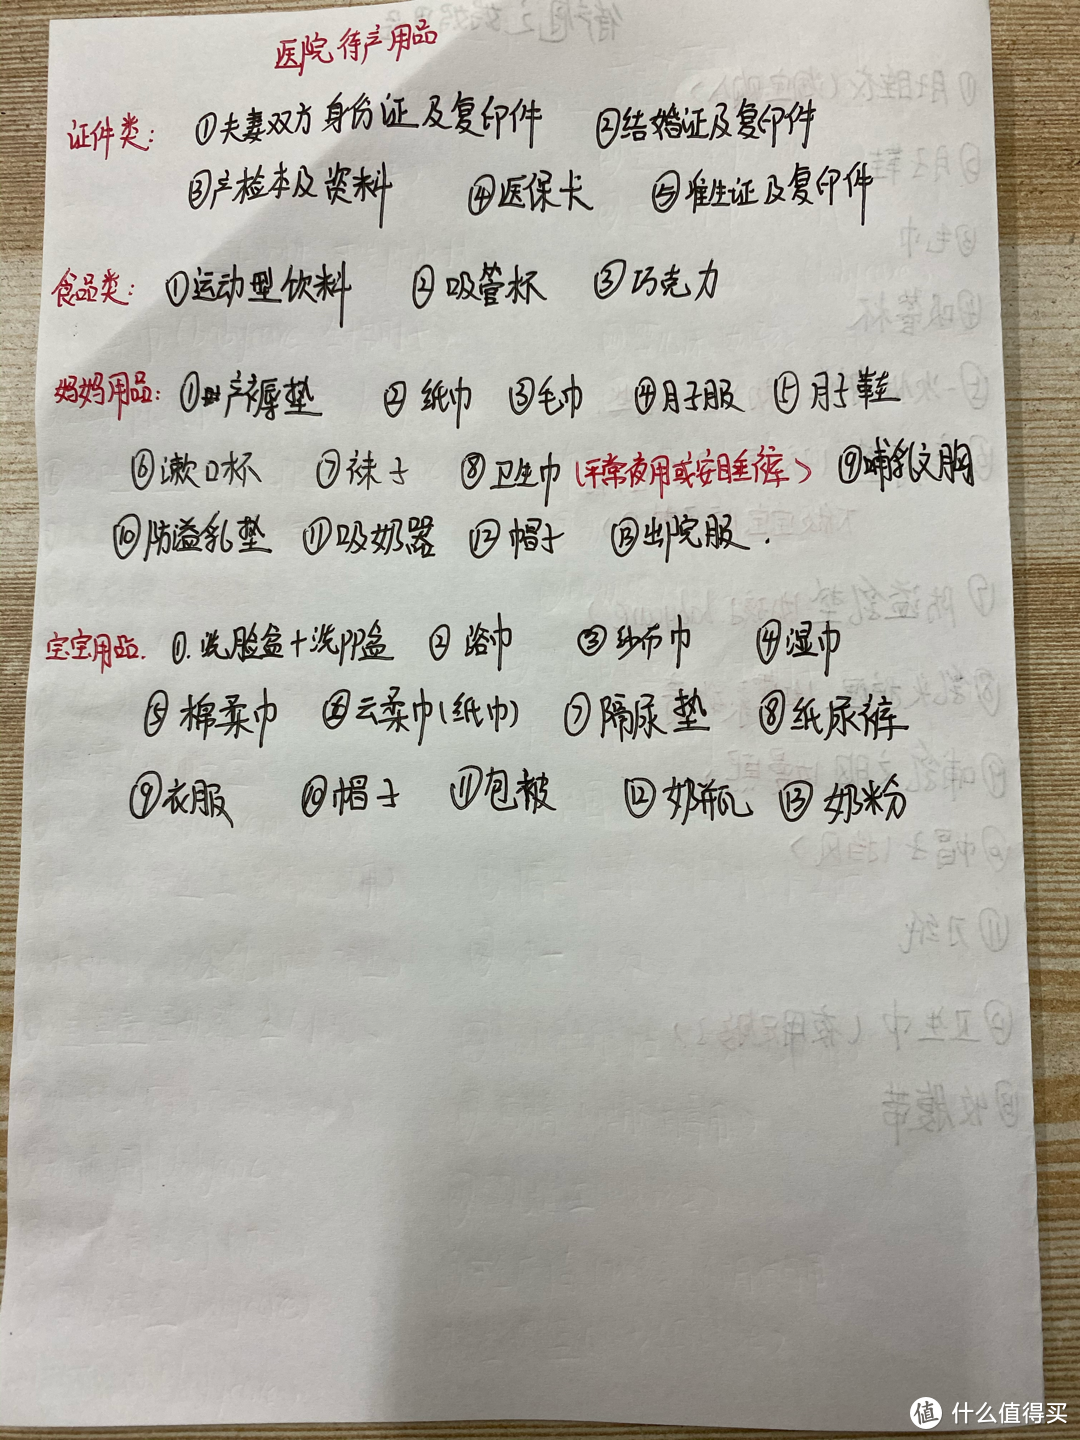 医院待产用品
证件类: ①夫妻双方身份证及复印件 ②结婚证及复印件
③产检本及资料 ④医保卡 ⑤准生证及复印件
食品类: ①运动型饮料 ② 吸管杯 ③巧克力
妈妈用品: ①产褥垫 ② 纸巾 ③毛巾 ④月子服 ⑤月子鞋
⑥漱口杯 ⑦袜子 ⑧卫生巾(平常夜用或安睡裤) ⑨哺乳文胸
⑩防溢乳垫 ⑪吸奶器 ⑫帽子 ⑬出院服.
宝宝用品. ①.洗脸盆+洗PP盆 ② 浴巾 ③纱布巾 ④湿巾
⑤ 棉柔巾 ⑥云柔巾(纸巾) ⑦隔尿垫 ⑧纸尿裤
⑨衣服 ⑩帽子 ⑪包被 ⑫奶瓶 ⑬奶粉
值 什么值得买